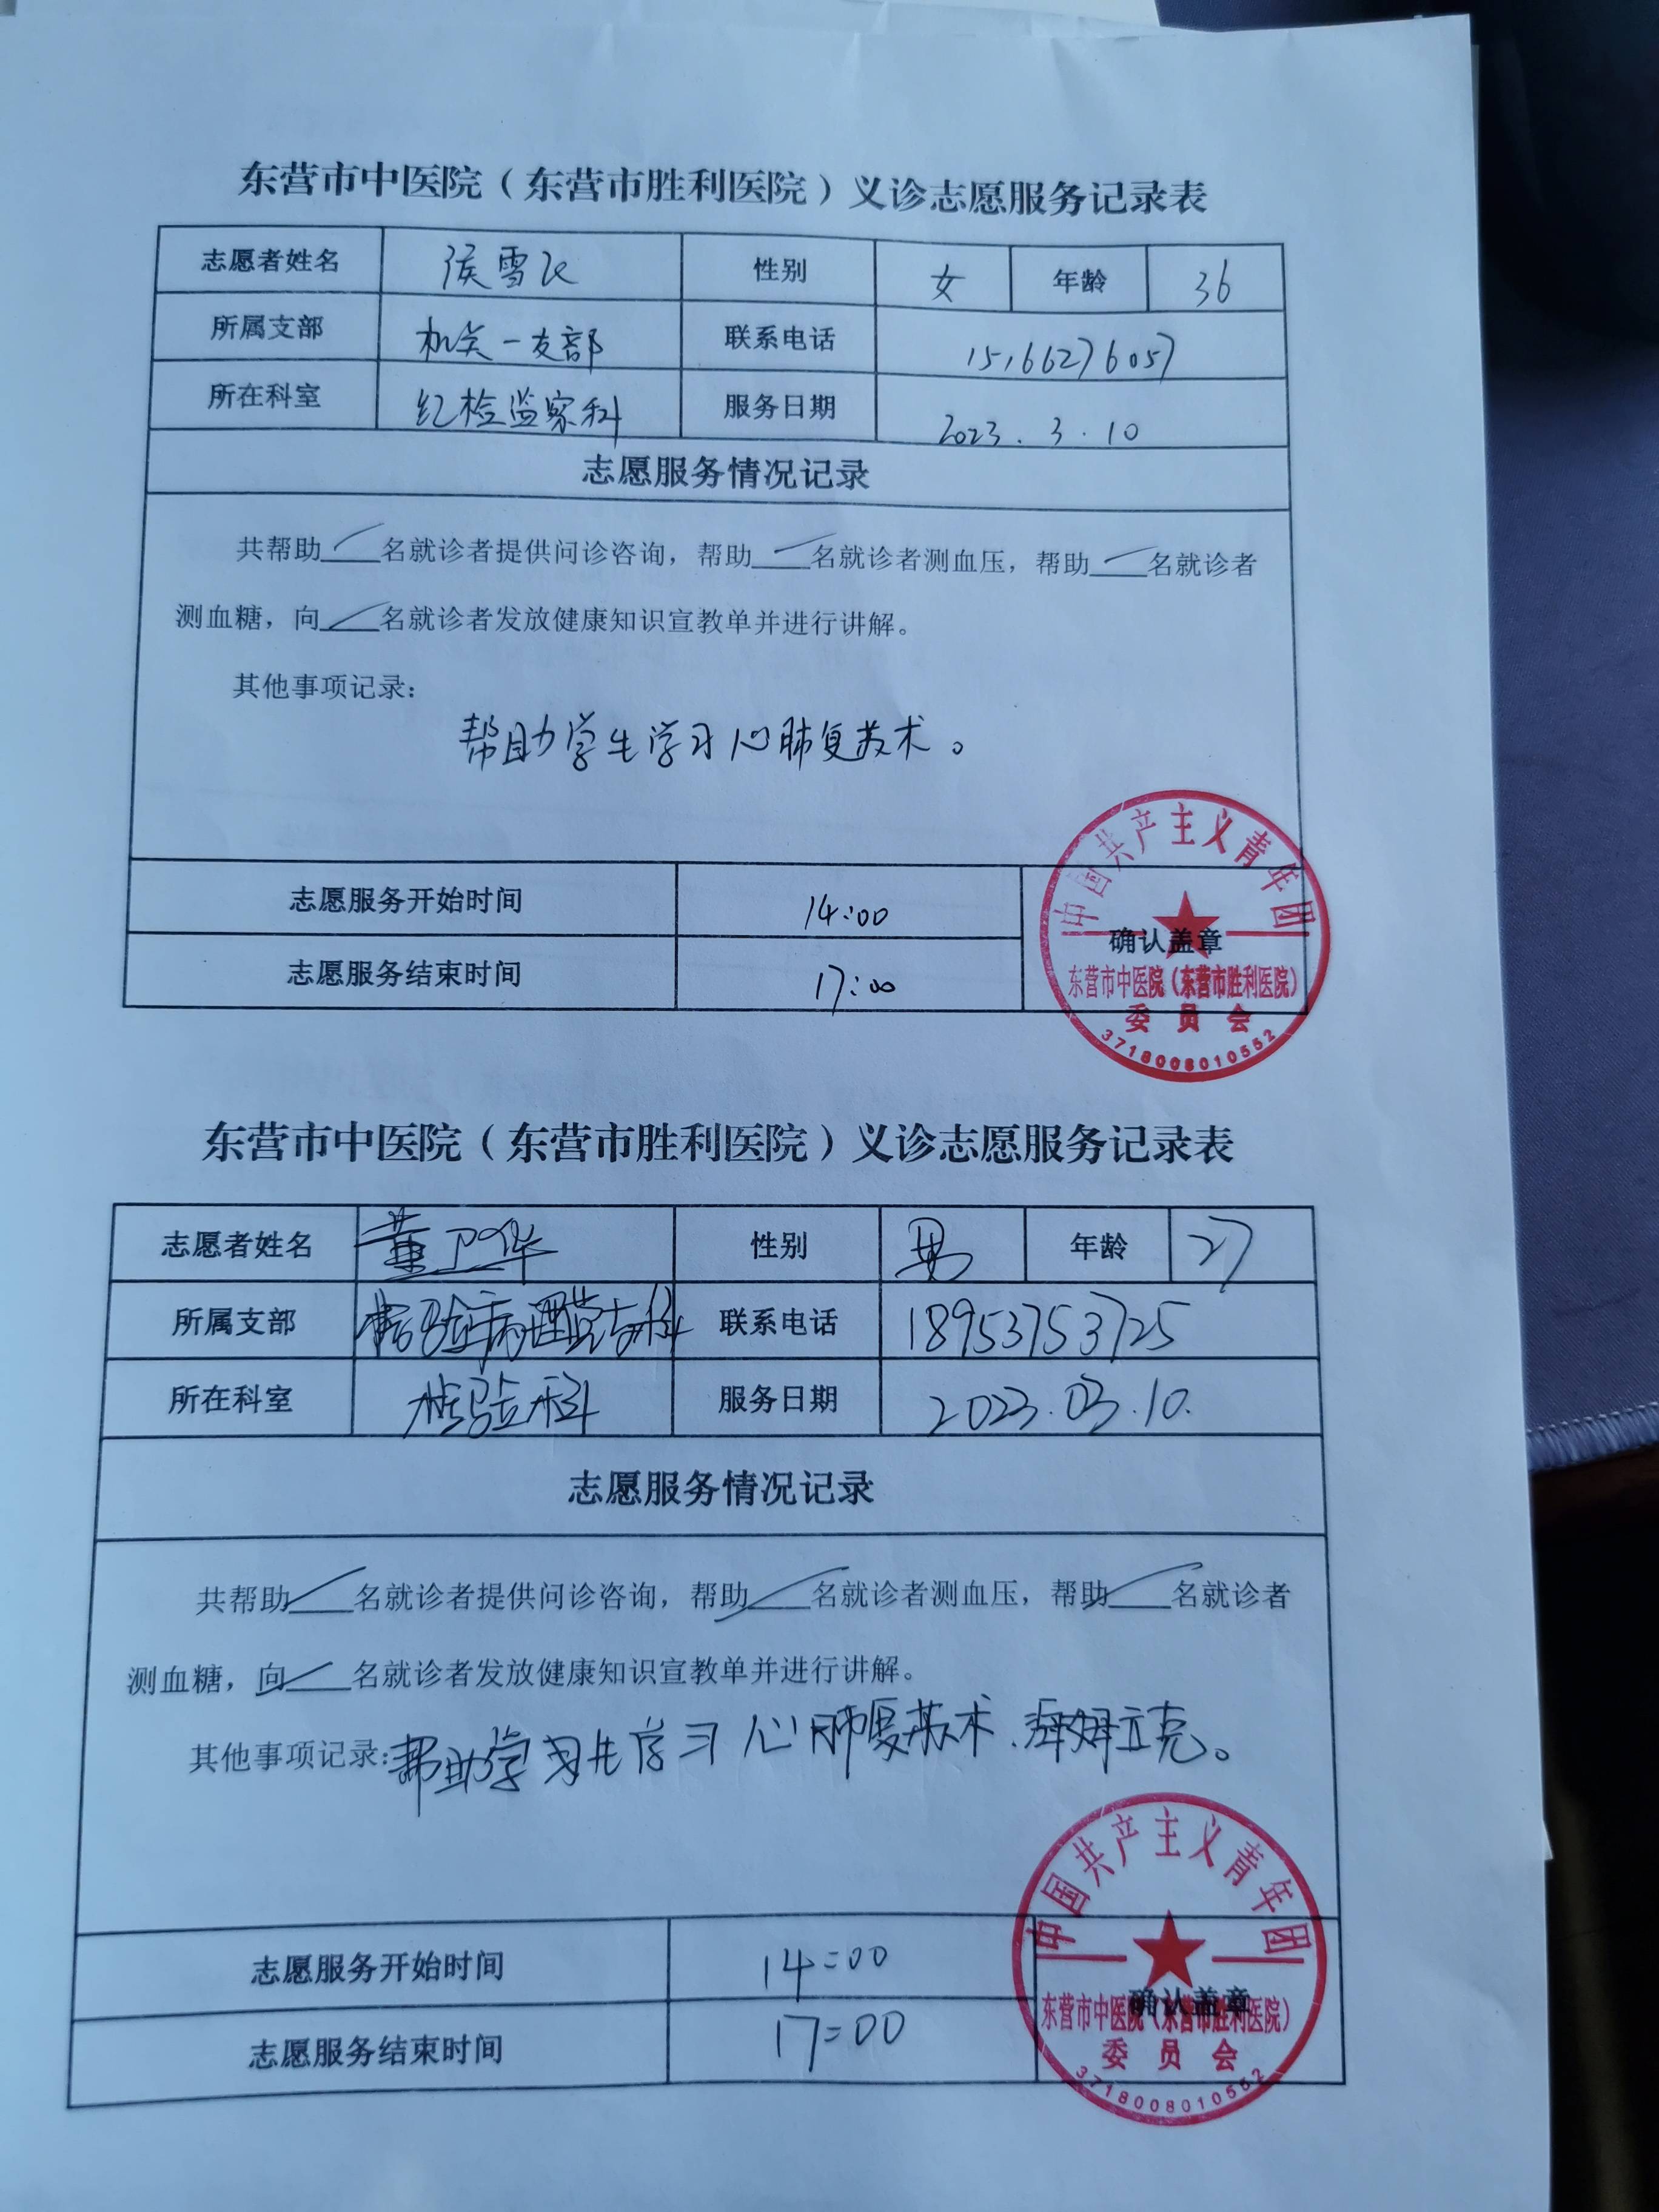 东营市中医院（东营市胜利医院）义诊志愿服务记录表
志愿者姓名 侯雪飞 性别 女 年龄 36
所属支部 机关一支部 联系电话 15166276057
所在科室 纪检监察科 服务日期 2023.3.10
志愿服务情况记录
共帮助___名就诊者提供问诊咨询，帮助___名就诊者测血压，帮助___名就诊者
测血糖，向___名就诊者发放健康知识宣教单并进行讲解。
其他事项记录：
帮助学生学习心肺复苏术。
志愿服务开始时间 14:00
确认盖章
志愿服务结束时间 17:00
中国共产主义青年团
东营市中医院（东营市胜利医院）
委员会
3718008010552
东营市中医院（东营市胜利医院）义诊志愿服务记录表
志愿者姓名 董卫华 性别 男 年龄 27
所属支部 联系电话 18953753725
所在科室 检验科 服务日期 2023.03.10.
志愿服务情况记录
共帮助___名就诊者提供问诊咨询，帮助___名就诊者测血压，帮助___名就诊者
测血糖，向___名就诊者发放健康知识宣教单并进行讲解。
其他事项记录：帮助学习生学习心肺复苏术、海姆立克。
志愿服务开始时间 14:00
确认盖章
志愿服务结束时间 17:00
中国共产主义青年团
东营市中医院（东营市胜利医院）
委员会
3718008010552